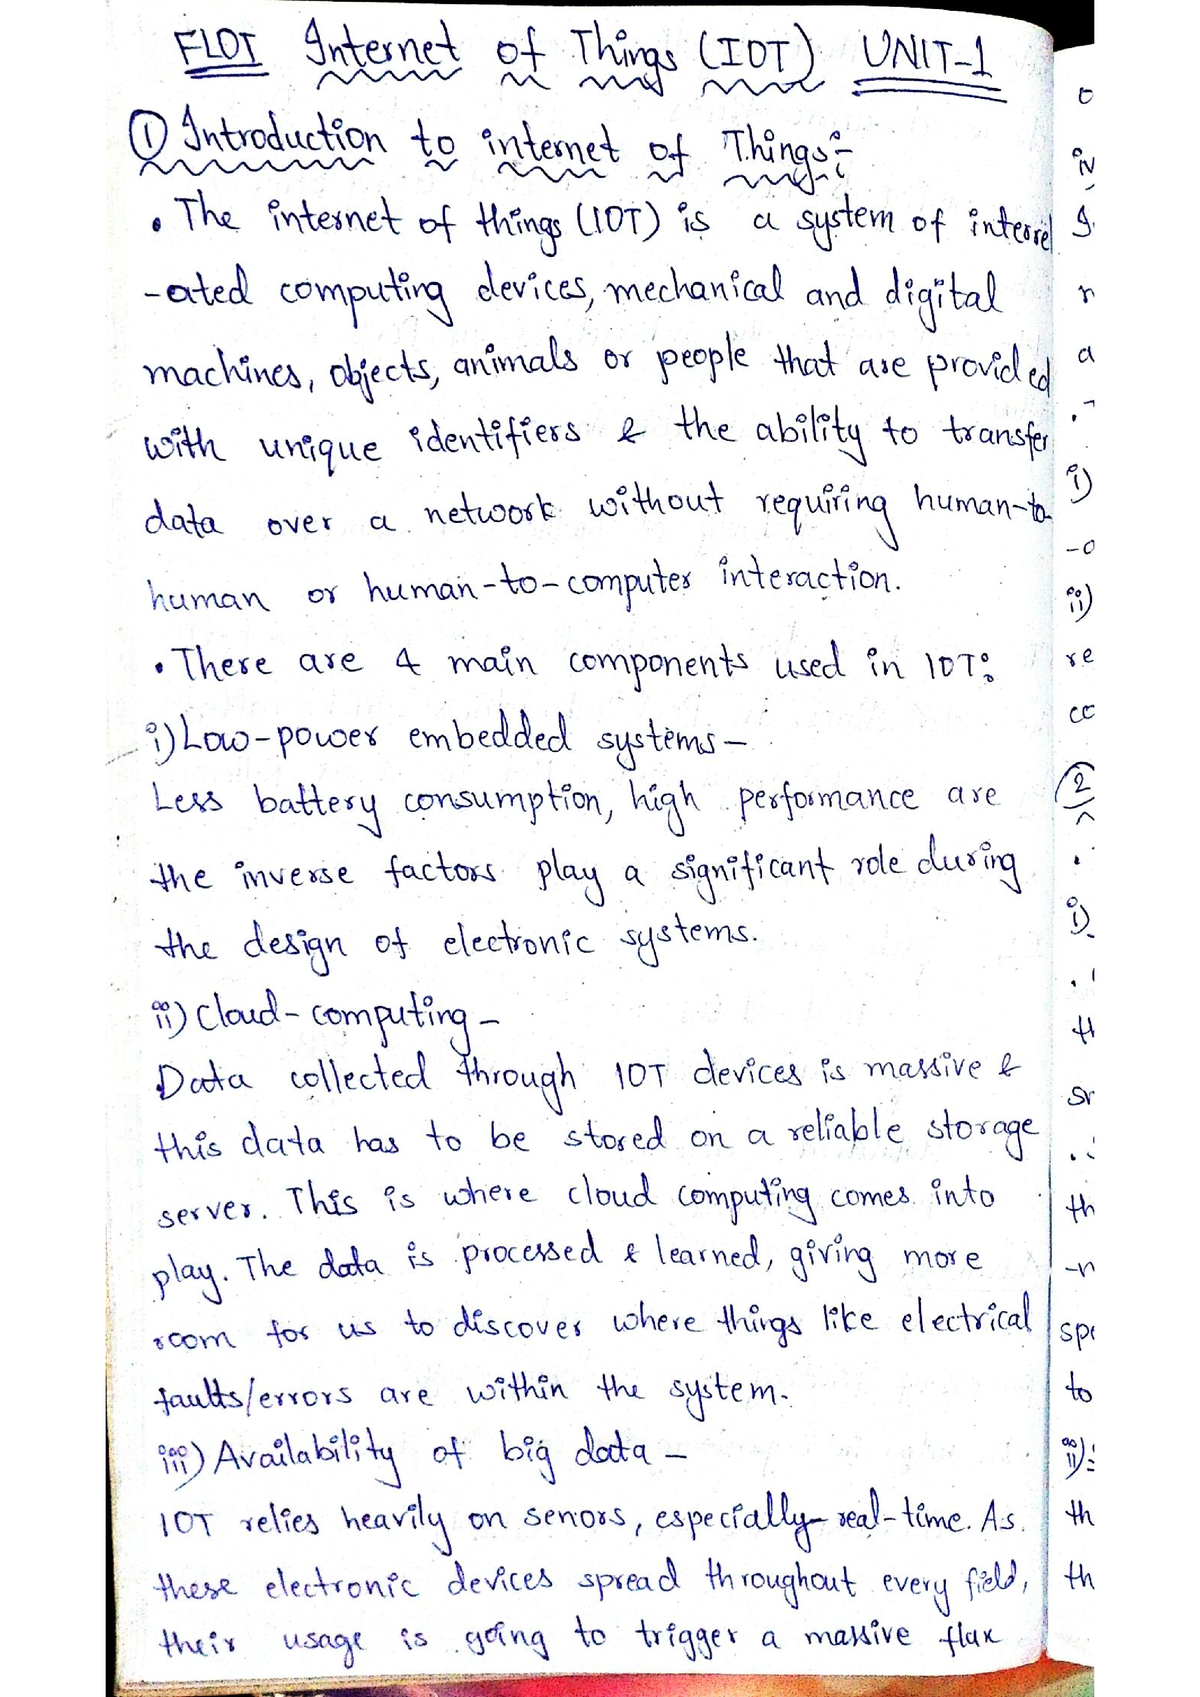 FIOT Internet of Things (IOT) UNIT-1
① Introduction to internet of Things:-
• The internet of things (IOT) is a system of interrel
-ated computing devices, mechanical and digital
machines, objects, animals or people that are provided
with unique identifiers & the ability to transfer
data over a network without requiring human-to-
human or human-to-computer interaction.
• There are 4 main components used in IOT:
i) Low-power embedded systems -
Less battery consumption, high performance are
the inverse factors play a significant role during
the design of electronic systems.
ii) Cloud-computing -
Data collected through IOT devices is massive &
this data has to be stored on a reliable storage
server. This is where cloud computing comes into
play. The data is processed & learned, giving more
room for us to discover where things like electrical
faults/errors are within the system.
iii) Availability of big data -
IOT relies heavily on senors, especially real-time. As
these electronic devices spread throughout every field,
their usage is going to trigger a massive flux